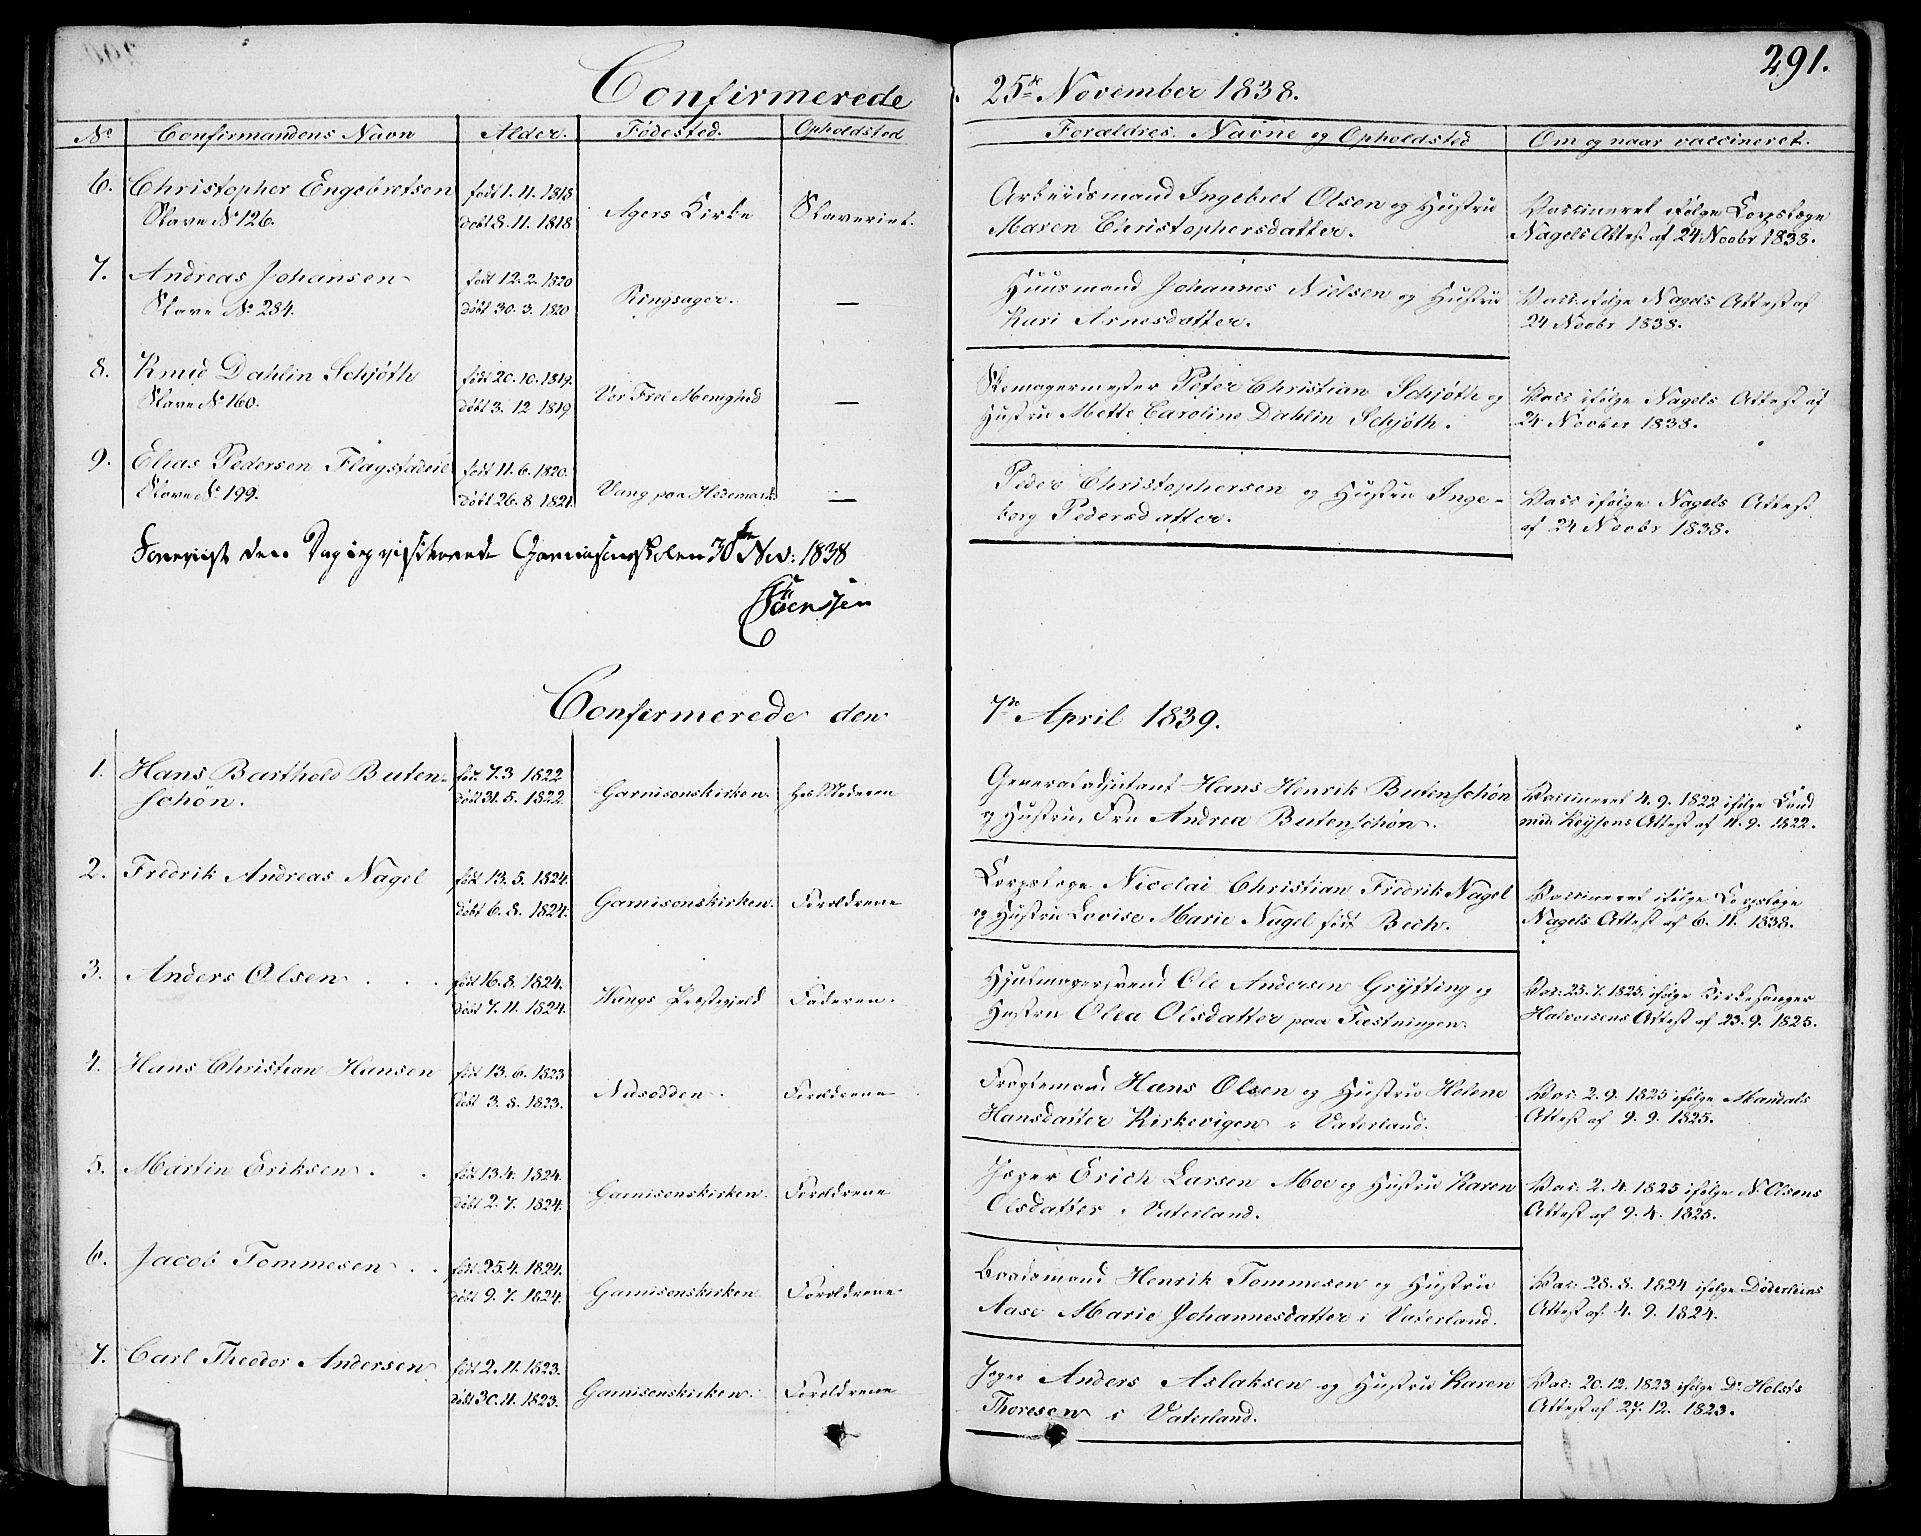 291.
Confirmerede 25de November 1838.
No Confirmandens Navn Alder. Fødested. Opholdsted Forældres Navne og Opholdsted Om og naar vaccineret.
6. Christopher Engebretsen født 1.11.1818 Agers Kirke Slaveriet. Arbeidsmand Ingebret Olsen og Hustru Vaccineret ifølge Corpslæge
Slave No 126. døbt 8.11.1818 Maren Christophersdatter. Nagels Attest af 24 Novbr 1838.
7. Andreas Johansen født 12.2.1820 Ringsager. — Huusmand Johannes Nielsen og Hustru Vacc. ifølge Nagels Attest af
Slave No 284. døbt 30.3.1820 Kari Arnesdatter. 24 Novbr 1838.
8. Knud Dahlin Schjøth født 20.10.1819. Vor Frel Menighed — Skomagermester Peter Christian Schjøth og Vacc ifølge Nagels Attest af
Slave No 160. døbt 3.12 1819 Hustru Mette Caroline Dahlin Schjøth. 24 Novber 1838.
9. Elias Pedersen Flagstadeie født 11.6.1820. Vang paa Hedemark — Peder Christophersen og Hustru Inge-
Slave No 199. døbt 26.8 1821 borg Pedersdatter. Vacc ifølge Nagels Attest
af 24 Novbr 1838.
Foreviist den Dag jeg visiterede Garnisonsskolen 30te Nov: 1838
Sörenssen
Confirmerede den 7de April 1839.
1. Hans Barthold Buten- født 7.3 1822 Garnisonskirken. hos Moderen Generaladjutant Hans Henrik Butenschön Vaccineret 4.9.1822 ifølge Cand
schön. døbt 31.5.1822. og Hustru, Fru Andrea Butenschön. med. Keysers Attest af 11.9.1822.
2. Fredrik Andreas Nagel født 13.5.1824. Garnisonskirken. Forældrene Corpslæge Nicolai Christian Fredrik Nagel Vaccineret ifølge Corpslæge
døbt 6.8.1824. og Hustru Lovise Marie Nagel født Bech. Nagels Attest af 6.11.1838.
3. Anders Olsen . . . født 16.8.1824. Vangs Præstegjeld Faderen. Hjulmagersvend Ole Andersen Grytting og Vac: 25.7.1825 ifølge Kirkesanger
døbt 7.11.1824. Hustru Olea Olsdatter paa Fæstningen. Halvorsens Attest af 23.9.1825.
4. Hans Christian Hansen født 13.6.1823 Næsodden. Forældrene Fragtemand Hans Olsen og Hustru Helene Vac: 2.9.1825 ifølge Mandals
døbt 3.8.1823. Hansdatter Kirkevigen i Vaterland. Attest af 9.9.1825.
5. Martin Eriksen . . født 13.4.1824. Garnisonskirken. Forældrene Jæger Erich Larsen Moe og Hustru Karen Vac: 2.4.1825 ifølge N. Olsens
døbt 2.7.1824. Olsdatter i Vaterland. Attest af 9.4.1825.
6. Jacob Tommesen . . født 25.4.1824. Garnisonskirken Forældrene Bordsmand Henrik Tommesen og Hustru Vac: 28.8.1824 ifølge Døderleins
døbt 9.7.1824. Aase Marie Johannesdatter i Vaterland. Attest af 4.9.1824.
7. Carl Theodor Andersen født 2.11.1823. Garnisonskirken. Forældrene Jæger Anders Aslaksen og Hustru Karen Vac: 20.12.1823 ifølge Dr Holsts
døbt 30.11.1823. Thoresen i Vaterland. Attest af 27.12.1823.